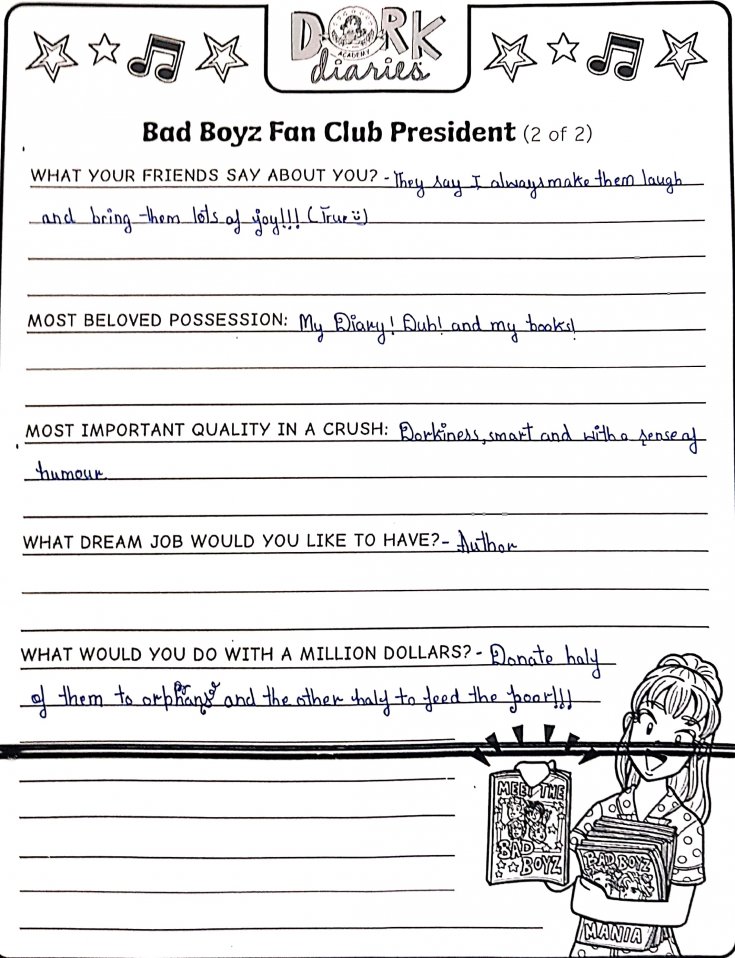 DORK
ACADEMY
diaries
Bad Boyz Fan Club President (2 of 2)
WHAT YOUR FRIENDS SAY ABOUT YOU? - They say I always make them laugh
and bring them lots of joy!!! (True☺)
MOST BELOVED POSSESSION: My Diary! Duh! and my books!
MOST IMPORTANT QUALITY IN A CRUSH: Dorkiness, smart and with a sense of
humour
WHAT DREAM JOB WOULD YOU LIKE TO HAVE? - Author
WHAT WOULD YOU DO WITH A MILLION DOLLARS? - Donate half
of them to orphans and the other half to feed the poor!!!
MEET THE
BAD
BOYZ
BAD BOYZ
MANIA